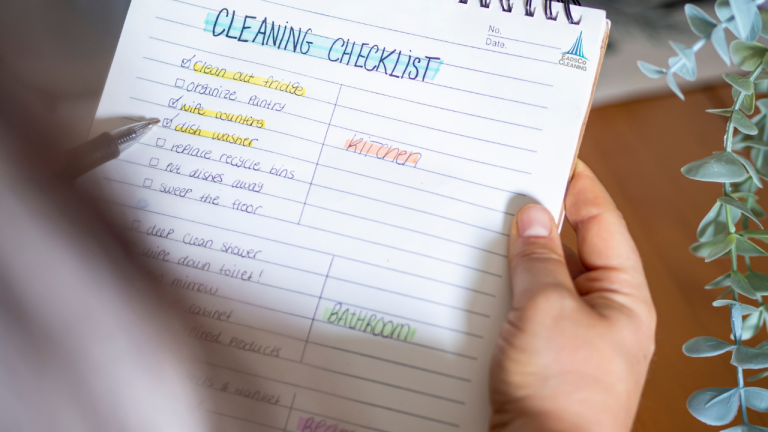 No.
Date.
EADSCO
CLEANING
CLEANING CHECKLIST
Clean out fridge
organize pantry
wipe counters
dish washer
replace recycle bins
put dishes away
sweep the floor
kitchen
deep clean shower
wipe down toilet!
mirrow
cabinet
products
BATHROOM